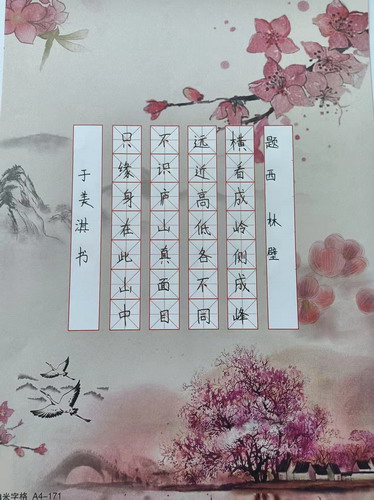 题西林壁
横看成岭侧成峰
远近高低各不同
不识庐山真面目
只缘身在此山中
于美淇书
米字格 A4-171